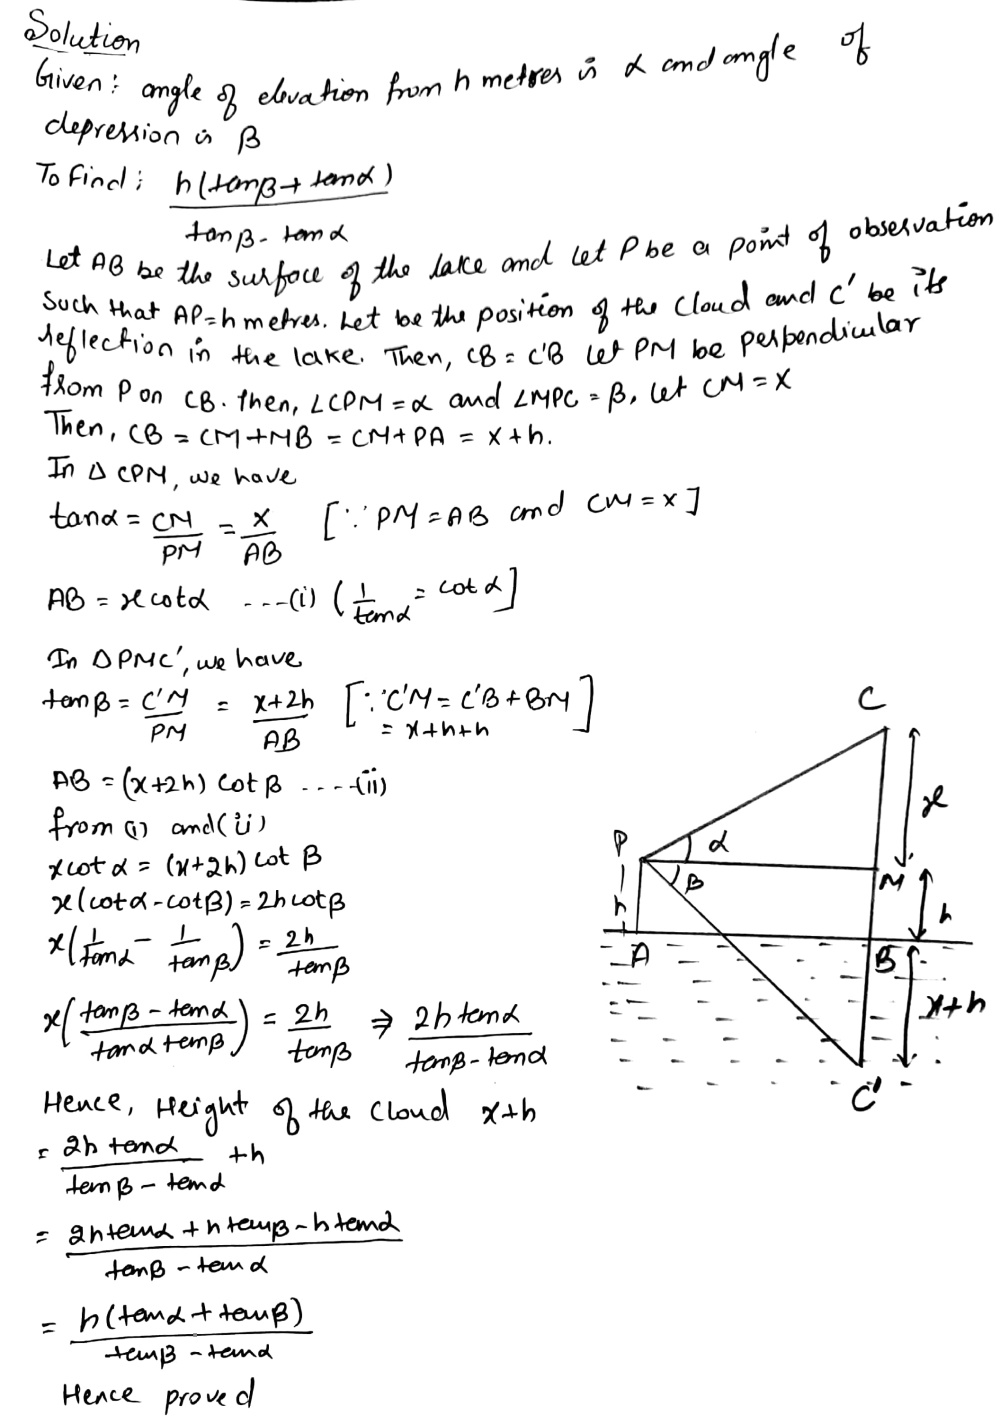 Solution
Given: angle of elevation from h metres is α and angle of
depression is β
To find: h(tanβ + tanα)
tanβ - tanα
Let AB be the surface of the lake and let P be a point of observation
Such that AP = h metres. Let be the position of the Cloud and C' be its
reflection in the lake. Then, CB = C'B Let PM be perpendicular
from P on CB. then, ∠CPM = α and ∠MPC = β, let CM = X
Then, CB = CM + MB = CM + PA = x + h.
In Δ CPM, we have
tanα = CM/PM = x/AB [∵ PM = AB and CM = x]
AB = x cotα ---(i) (1/tanα = cotα]
In ΔPMC', we have
tanβ = C'M/PM = x+2h/AB [∵ C'M = C'B + BM]
= x+h+h
AB = (x+2h) cot β ----(ii)
from (i) and (ii)
x cot α = (x+2h) cot β
x(cotα - cotβ) = 2h cotβ
x(1/tanα - 1/tanβ) = 2h/tanβ
x(tanβ - tanα/tanα tanβ) = 2h/tanβ ⇒ 2h tanα/tanβ - tanα
Hence, Height of the Cloud x+h
= 2h tanα/tanβ - tanα + h
= 2h tanα + h tanβ - h tanα
tanβ - tanα
= h(tanα + tanβ)
tanβ - tanα
Hence proved
C
x
P
α
β
M
h
h
A
B
x+h
C'